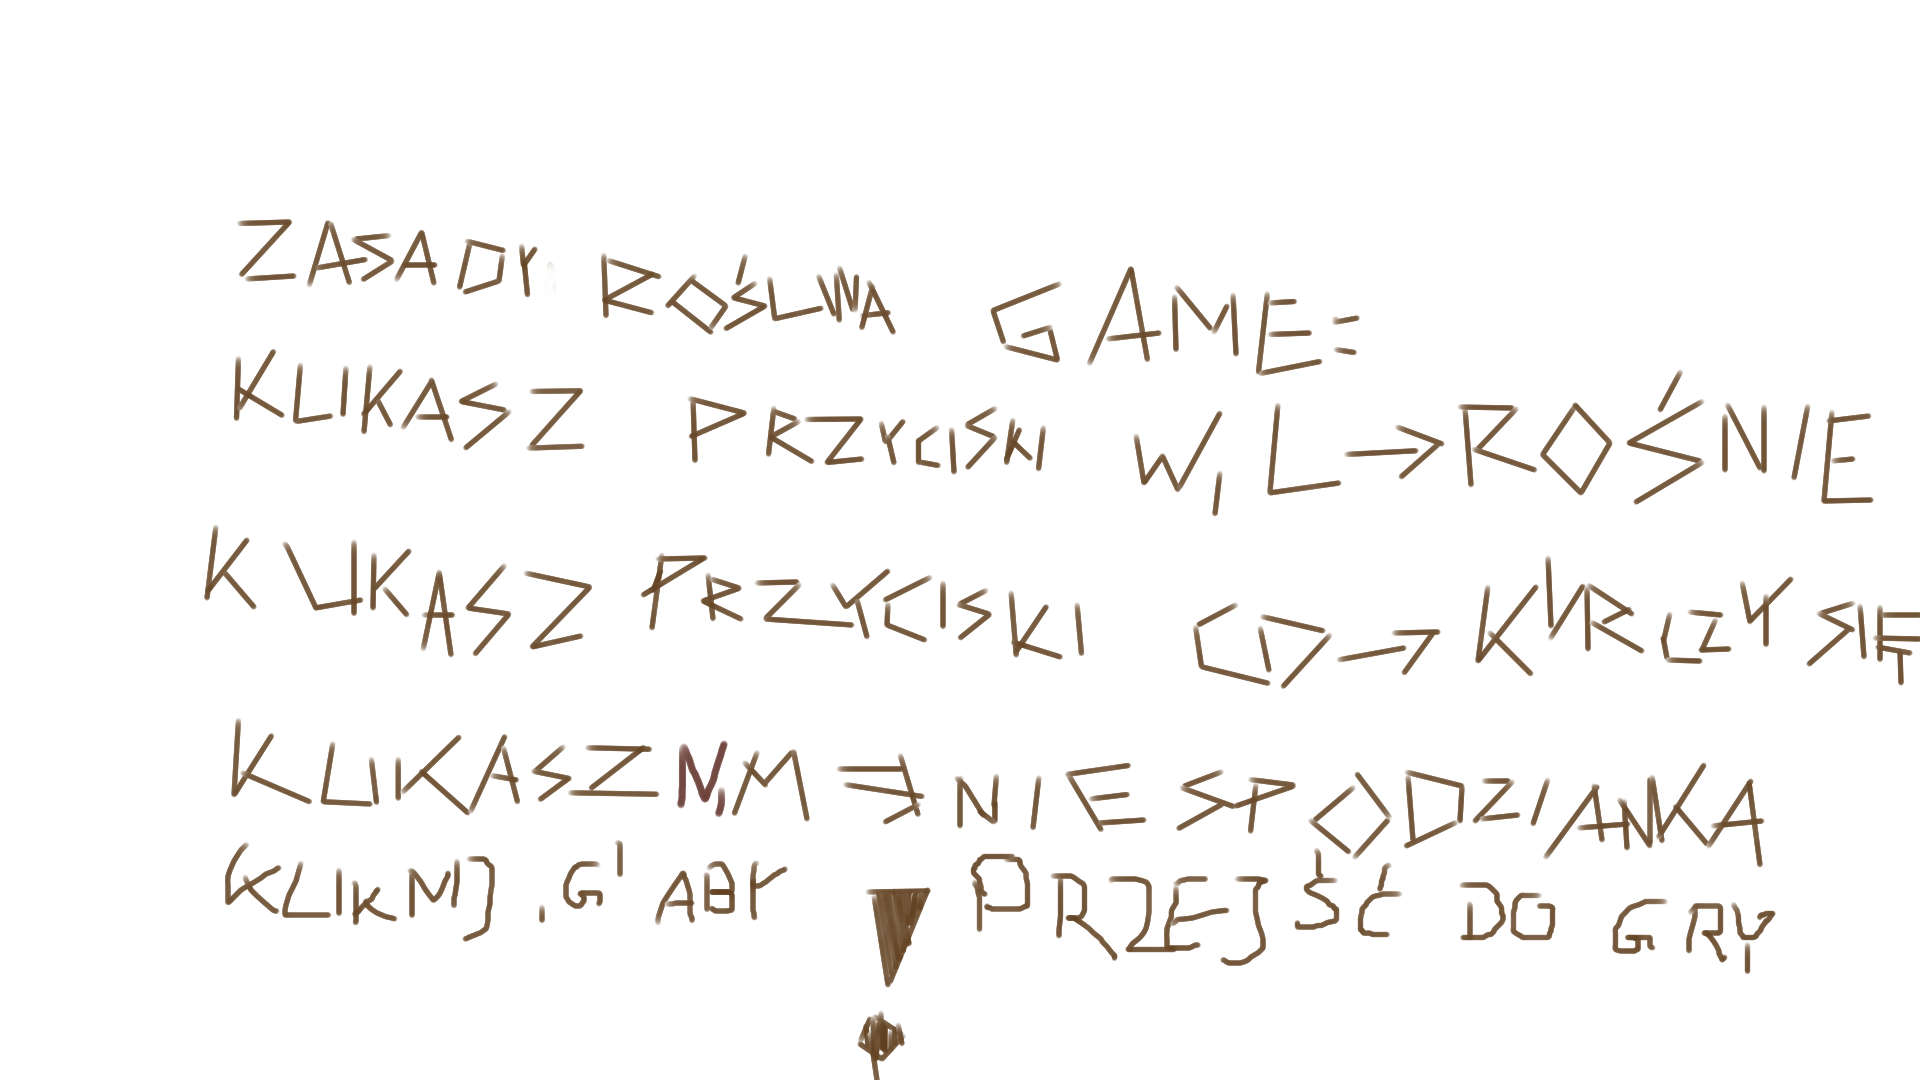 ZASADY ROŚLINA GAME:
KLIKASZ PRZYCISKI W, L → ROŚNIE
KLIKASZ PRZYCISKI C D → KURCZY SIĘ
KLIKASZ N, M → NIESPODZIANKA
KLIKNIJ ,G' ABY PRZEJŚĆ DO GRY
!